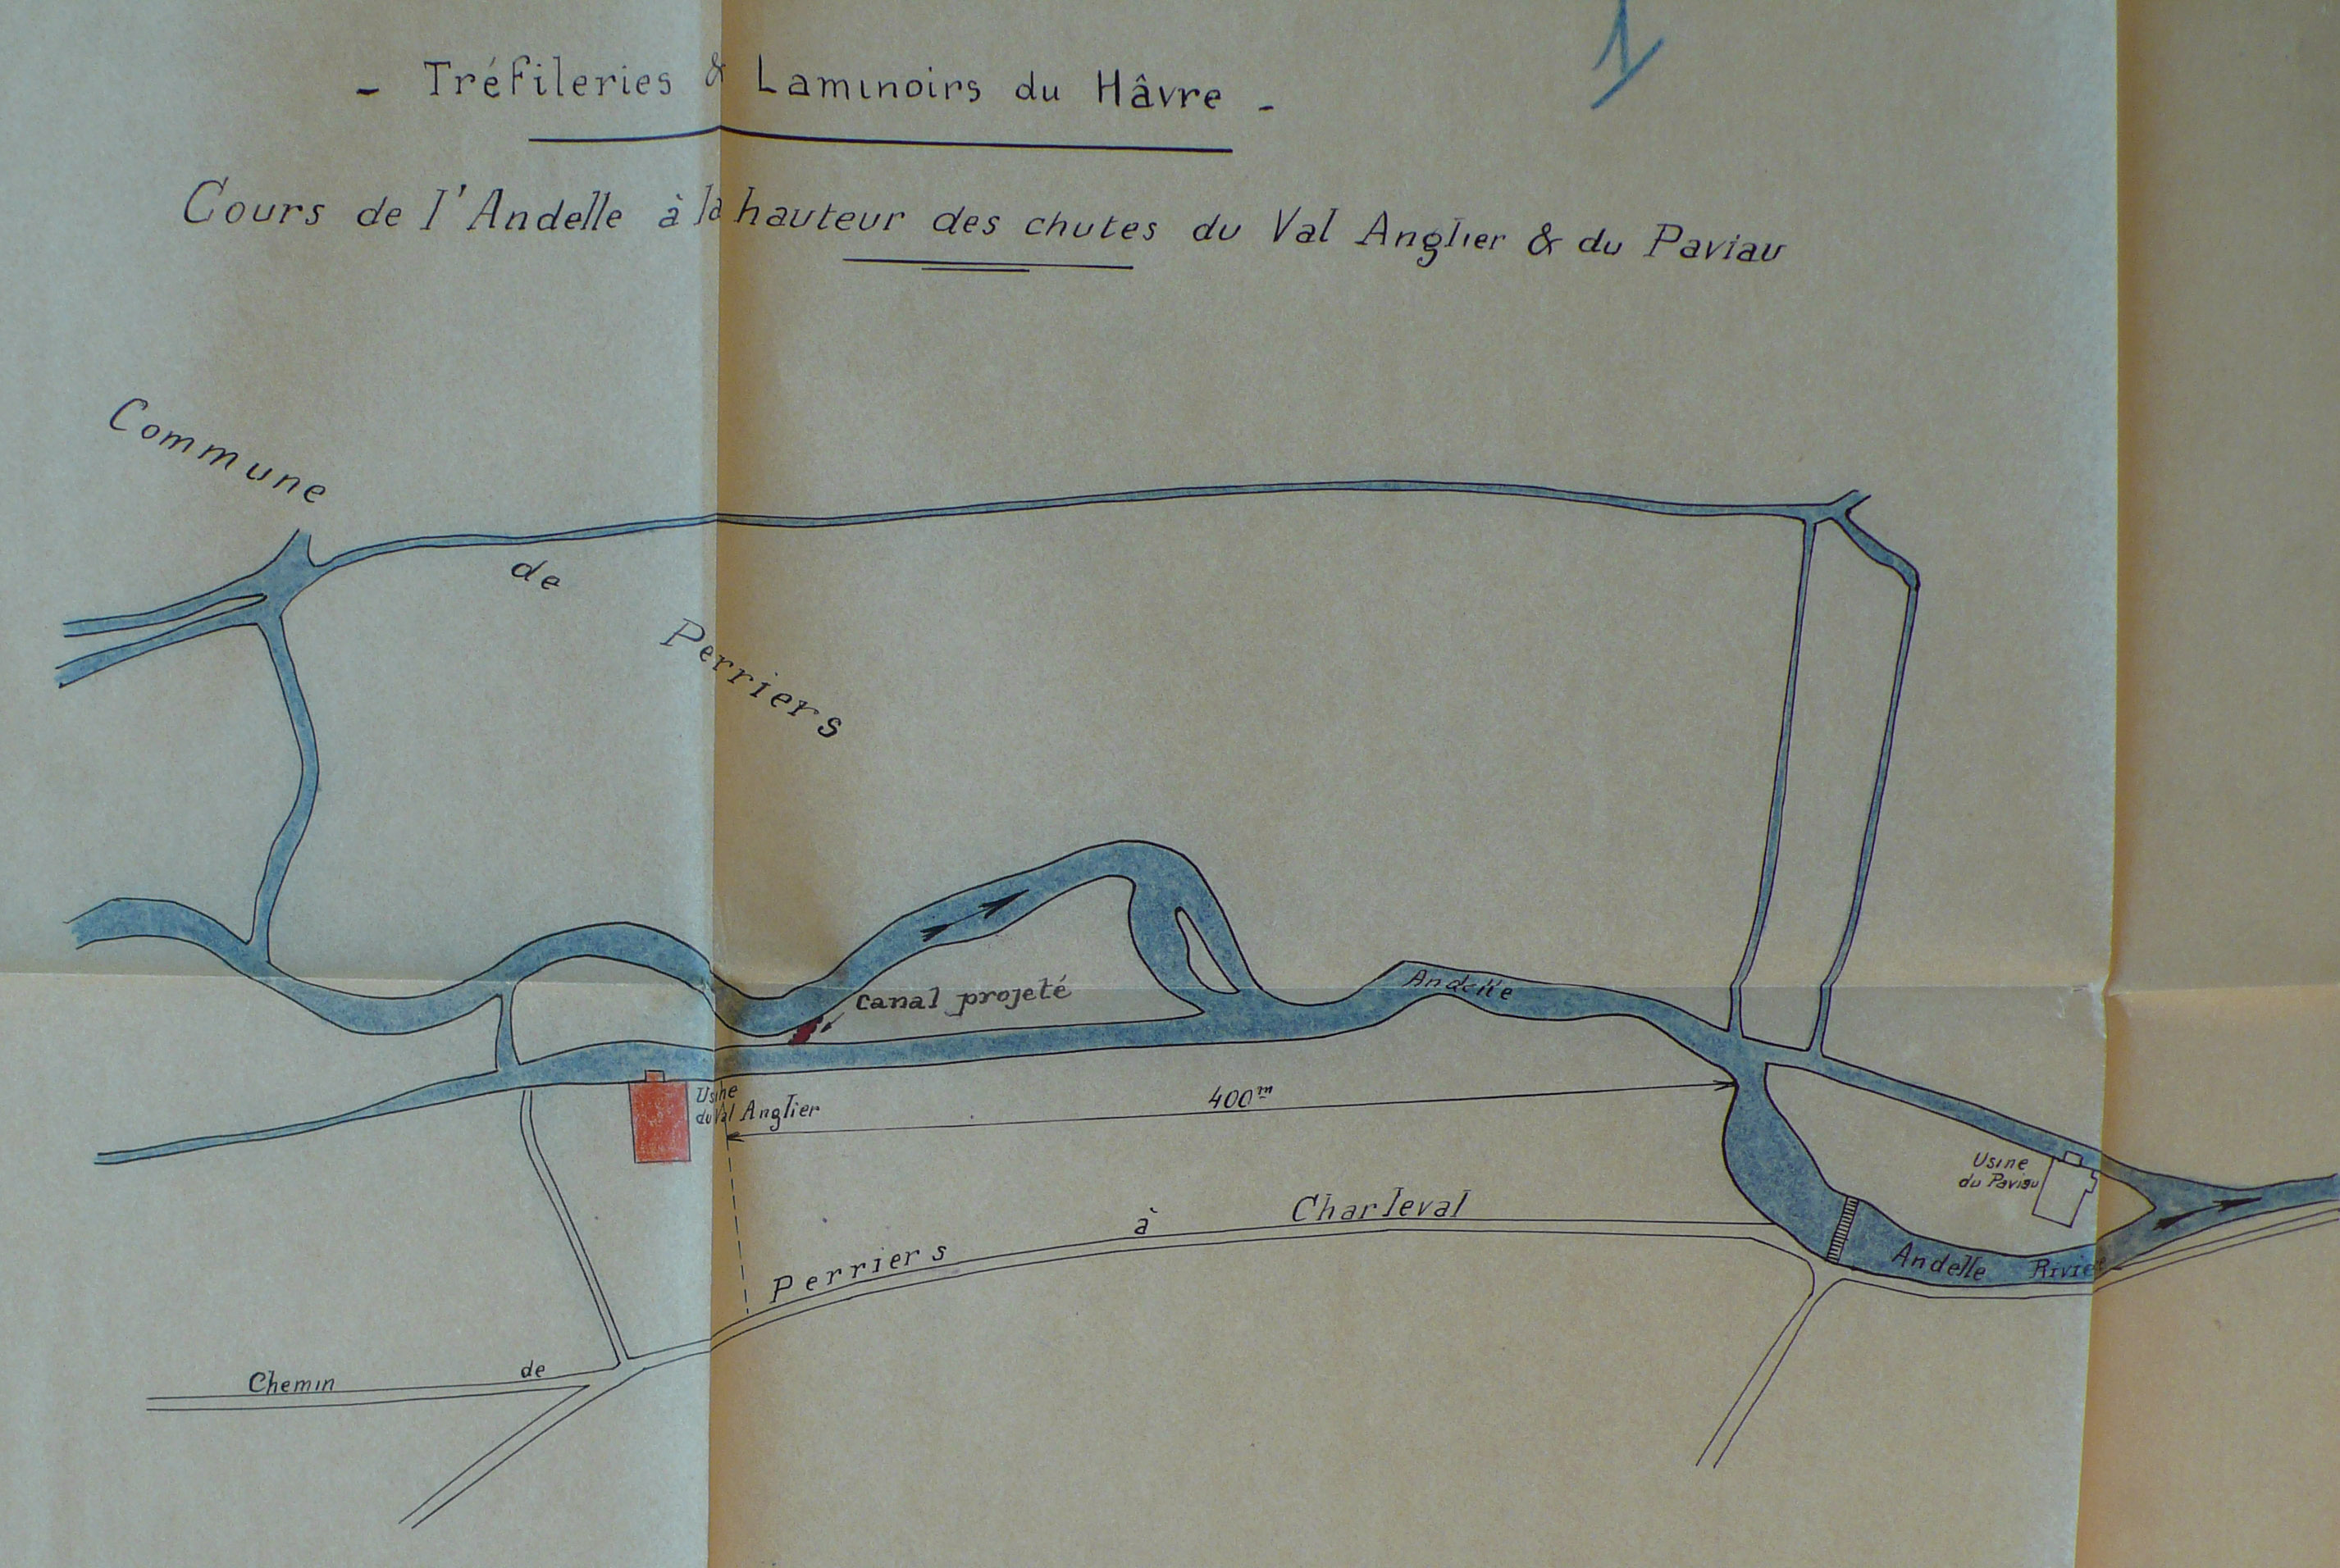 1
- Tréfileries & Laminoirs du Hâvre -
Cours de l'Andelle à la hauteur des chutes du Val Anglier & du Paviau
Commune
de
Perriers
Canal projeté
Andelle
Usine
du Val Anglier
400m
Usine
du Paviau
Charleval
à
Perriers
Andelle Rivière
Chemin de